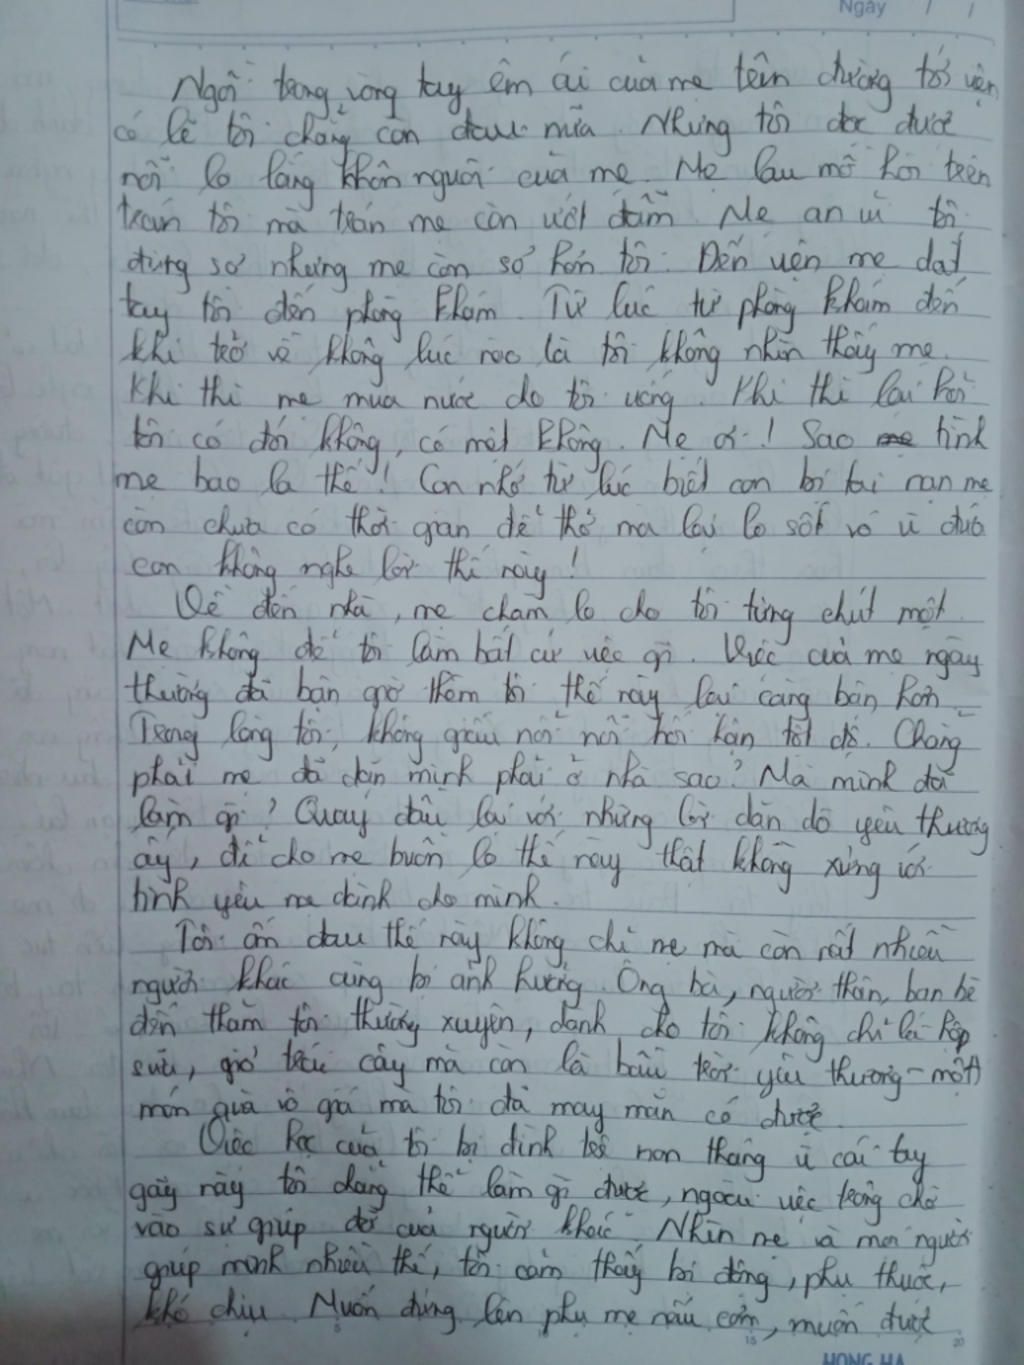 Ngày / /
Ngồi trong vòng tay êm ái của mẹ trên đường tới viện
có lẽ tôi chẳng còn đau nữa. Nhưng tôi đọc được
nỗi lo lắng khôn nguôi của mẹ. Mẹ lau mồ hôi trên
trán tôi mà trán mẹ còn ướt đẫm. Mẹ an ủi tôi
đừng sợ nhưng mẹ còn sợ hơn tôi. Đến viện mẹ dắt
tay tôi đến phòng khám. Từ lúc từ phòng khám đến
khi trở về không lúc nào là tôi không nhìn thấy mẹ.
Khi thì mẹ mua nước cho tôi uống. Khi thì lại hỏi
tôi có đói không, có mệt không. Mẹ ơi! Sao tình
mẹ bao la thế! Con nhớ từ lúc biết con bị tai nạn mẹ
còn chưa có thời gian để thở mà lại lo sốt vó vì đứa
con không nghe lời thế này!
Về đến nhà, mẹ chăm lo cho tôi từng chút một.
Mẹ không để tôi làm bất cứ việc gì. Việc của mẹ ngày
thường đã bận giờ thêm tôi thế này lại càng bận hơn.
Trong lòng tôi, không giấu nổi nỗi hối hận tột độ. Chẳng
phải mẹ đã dặn mình phải ở nhà sao? Mà mình đã
làm gì? Quay đầu lại với những lời dặn dò yêu thương
ấy, để cho mẹ buồn lo thế này thật không xứng với
tình yêu mẹ dành cho mình.
Tôi ốm đau thế này không chỉ mẹ mà còn rất nhiều
người khác cũng bị ảnh hưởng. Ông bà, người thân, bạn bè
đến thăm tôi thường xuyên, dành cho tôi không chỉ là hộp
sữa, giỏ trái cây mà còn là bầu trời yêu thương - một
món quà vô giá mà tôi đã may mắn có được.
Việc học của tôi bị đình trệ non tháng vì cái tay
gãy này tôi chẳng thể làm gì được, ngoài việc trông chờ
vào sự giúp đỡ của người khác. Nhìn mẹ và mọi người
giúp mình nhiều thế, tôi cảm thấy bị động, phụ thuộc,
khó chịu. Muốn đứng lên phụ mẹ nấu cơm, muốn được
HONG HA